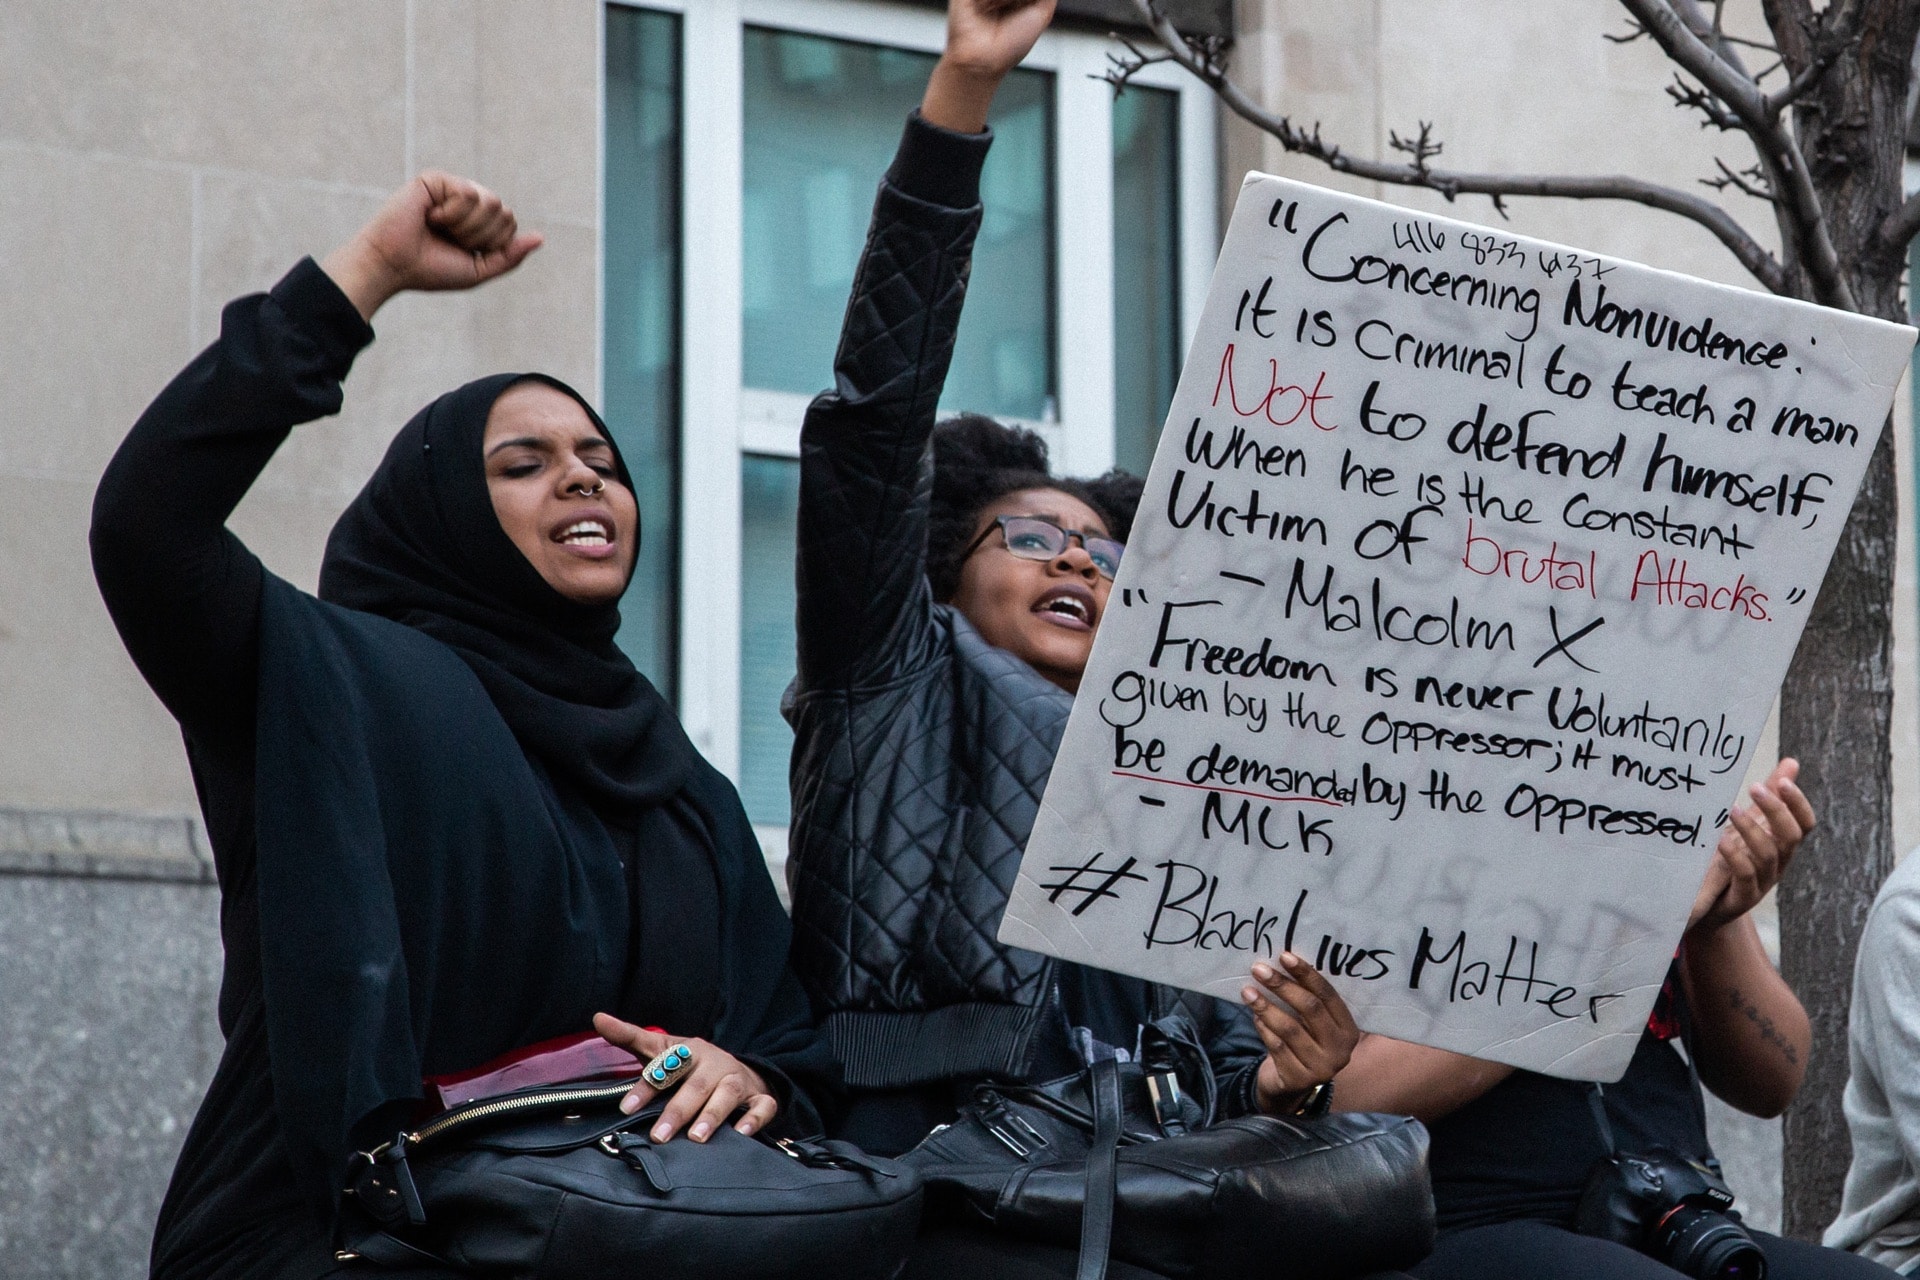 416 833 6237
"Concerning Nonviolence:
It is Criminal to teach a man
Not to defend himself,
When he is the Constant
Victim of brutal Attacks."
- Malcolm X
"Freedom is never Voluntarily
given by the Oppressor; it must
be demanded by the Oppressed."
- MLK
#BlackLives Matter
SONY